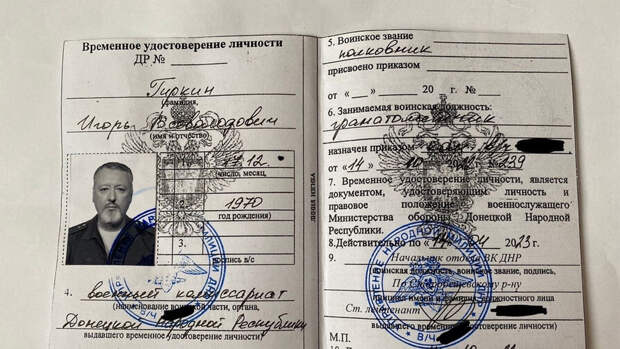 Временное удостоверение личности
ДР №
Гиркин
(фамилия,
Игорь Всеволодович
(имя и отчество)
17.12.
число, месяц,
1970
год рождения)
3.
подпись в/с
4. военный комиссариат
(наименование воинской части, органа,
Донецкой Народной Республики
выдавшего временное удостоверение личности)
5. Воинское звание
полковник
присвоено приказом
от « » 20 г. №
6. Занимаемая воинская должность:
гранатометчик
назначен приказом
от «14» 10 239
7. Временное удостоверение личности, является
документом, удостоверяющим личность и
правовое положение военнослужащего
Министерства обороны Донецкой Народной
Республики.
8.Действительно по «14» 04 2023г.
9. Начальник отдела ВК ДНР
(воинская должность, воинское звание, подпись,
По Старобешевскому р-ну
фамилия имени и отчества должностного лица
Ст. лейтенант
выдавшего временное удостоверение личности)
М.П.